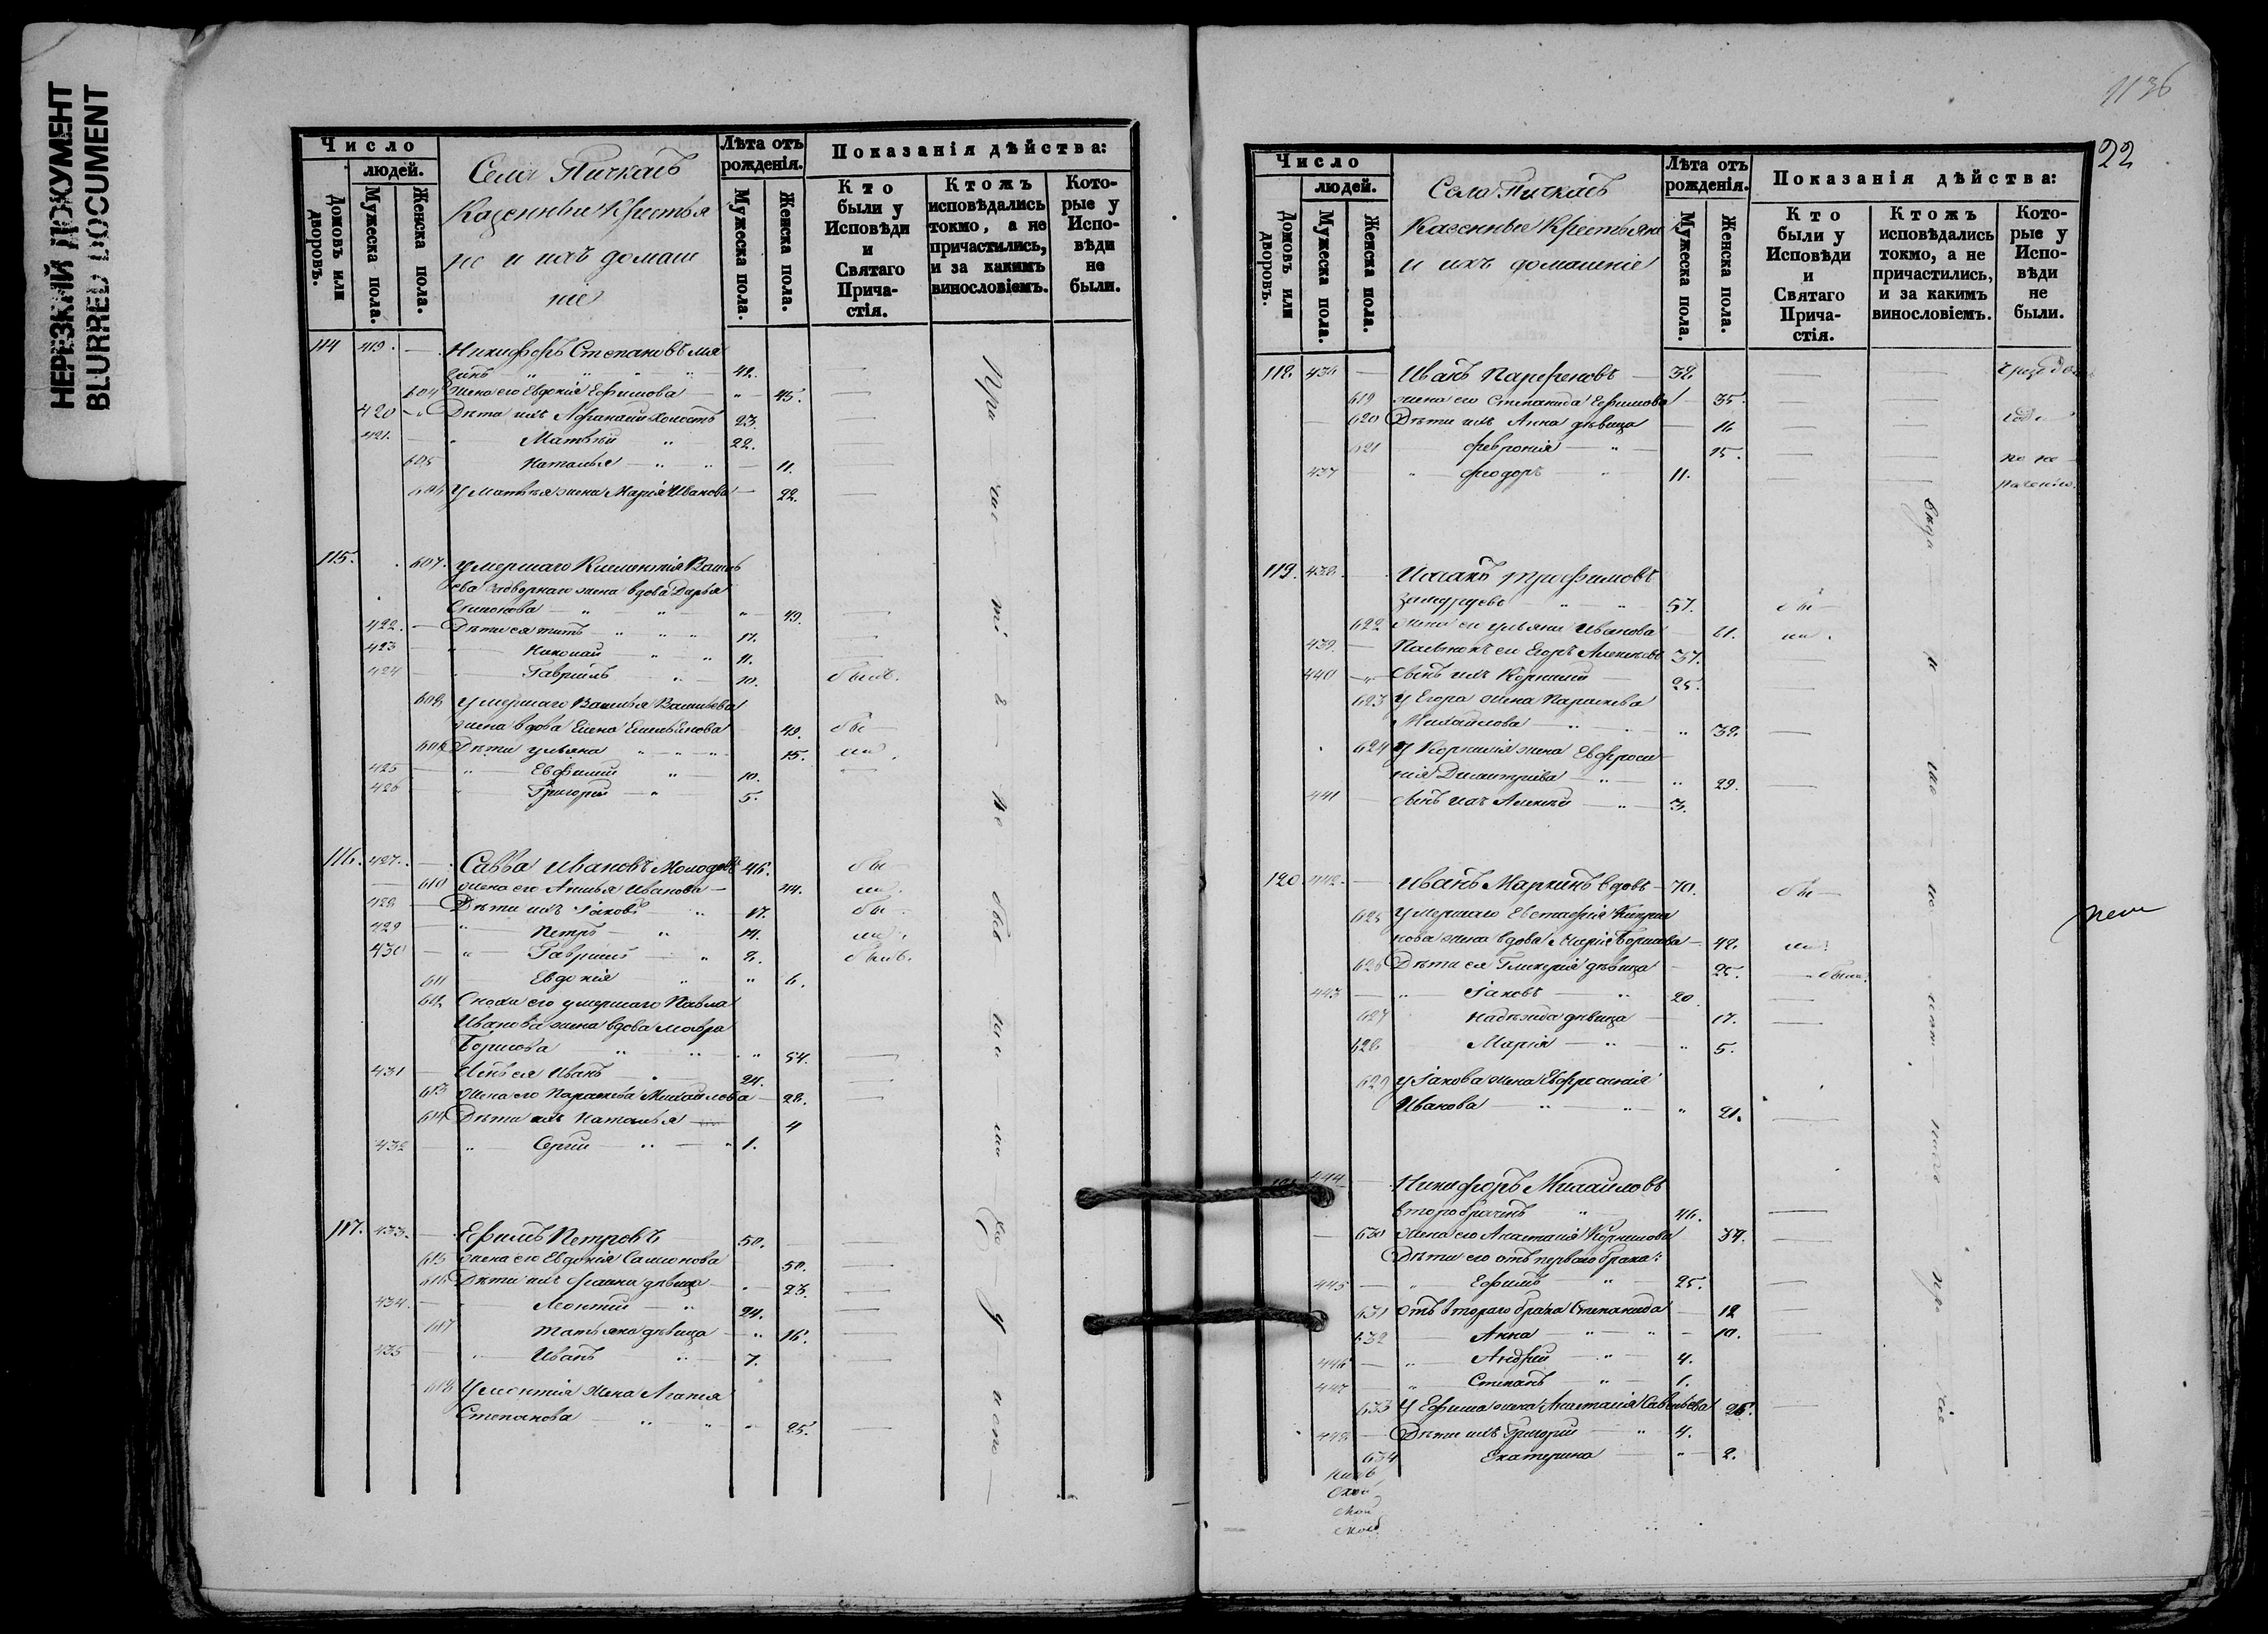 НЕРЕЗКИЙ ДОКУМЕНТ
BLURRED DOCUMENT
Число
людей.
Домовъ или дворовъ.
Мужеска пола.
Женска пола.
Села Пичкасъ
Казенные Крестья
не и ихъ домаш
ніе
Лѣта отъ рожденія.
Мужеска пола.
Женска пола.
Показанія дѣйства:
Кто были у Исповѣди и Святаго Причастія.
Ктожъ исповѣдались токмо, а не причастились, и за какимъ винословіемъ.
Которые у Исповѣди не были.
114 419. Никифоръ Степановъ
42.
604 жена его Евдокія Ефимова 45.
420 Дѣти ихъ Афанасій холостъ 23.
421. Матвѣй 22.
605 Наталья 11.
606 У Матвѣя жена Марія Иванова 22.
115. 607. умершаго Климентія Василь
ева жена вдова Дарья
Симонова 49.
422. Дѣти ея Титъ 17.
423 Николай 11.
424 Гавріилъ 10. былъ.
608 умершаго Василья Васильева
жена вдова Елена Емельянова 49. бы
609 Дѣти Ульяна 15. ли
425 Евфимій 10.
426 Григорій 5.
116. 427. Савва Ивановъ 46. бы
610 жена его Анисья Иванова 44. ли.
428 Дѣти ихъ Іаковъ 17. бы
429 Петръ 14. ли.
430 Гавріилъ 8. былъ.
611 Евдокія 6.
612 Сноха его умершаго Павла
Иванова жена вдова Мавра
Борисова 54.
431 Сынъ ея Иванъ 24.
613 Жена его Параскева Михайлова 28.
614 Дѣти ихъ Наталья 4
432 Сергій 1.
117. 433. Ефимъ Петровъ 50.
615 жена его Евдокія Самсонова 50.
616 Дѣти ихъ дѣвица 23.
434. Леонтій 24.
617 Татьяна дѣвица 16.
435 Иванъ 7.
618 У Леонтія жена Агафья
Степанова 25.
1136
22
Число
людей.
Домовъ или дворовъ.
Мужеска пола.
Женска пола.
Село Пичкасъ
Казенные Крестьяне
и ихъ домашніе
Лѣта отъ рожденія.
Мужеска пола.
Женска пола.
Показанія дѣйства:
Кто были у Исповѣди и Святаго Причастія.
Ктожъ исповѣдались токмо, а не причастились, и за какимъ винословіемъ.
Которые у Исповѣди не были.
118. 436 Иванъ Парфеновъ 38.
619 жена его Степанида Ефимова 35.
620 Дѣти ихъ Анна дѣвица 16
621 Феврония 15.
437 Феодоръ 11.
119. 438. Исаакъ Трифимовъ
57. бы
622 жена его Ульяна Иванова 61. ли.
439. Егоръ Алексѣевъ 37.
440 Сынъ ихъ Корнилій 25.
623 У Егора жена Параскева
Михайлова 38.
624 У Корнилія жена Евфроси
нія Димитріева 29.
441 Сынъ ихъ Алексѣй 3.
120 442. Иванъ Маркинъ вдовъ 70. бы
625 Умершаго Евстафія Киприя
нова жена вдова Марія Борисова 48. ли.
626 Дѣти ея Гликерія дѣвица 25. была.
443 Іаковъ 20.
627 Надежда дѣвица 17.
628 Марія 5.
629 У Іакова жена Евфросинія
Иванова 21.
444 Никифоръ Михайловъ
второбрачный 46.
630 Жена его Анастасія Корнилова 37.
Дѣти его отъ перваго брака:
445 Ефимъ 25.
631 отъ втораго брака Степанида 12
632 Анна 10.
446 Андрей 4.
447 Степанъ 1.
633 У Ефима жена Анастасія Савельева 26.
448 Дѣти ихъ Григорій 4.
634 Екатерина 2.